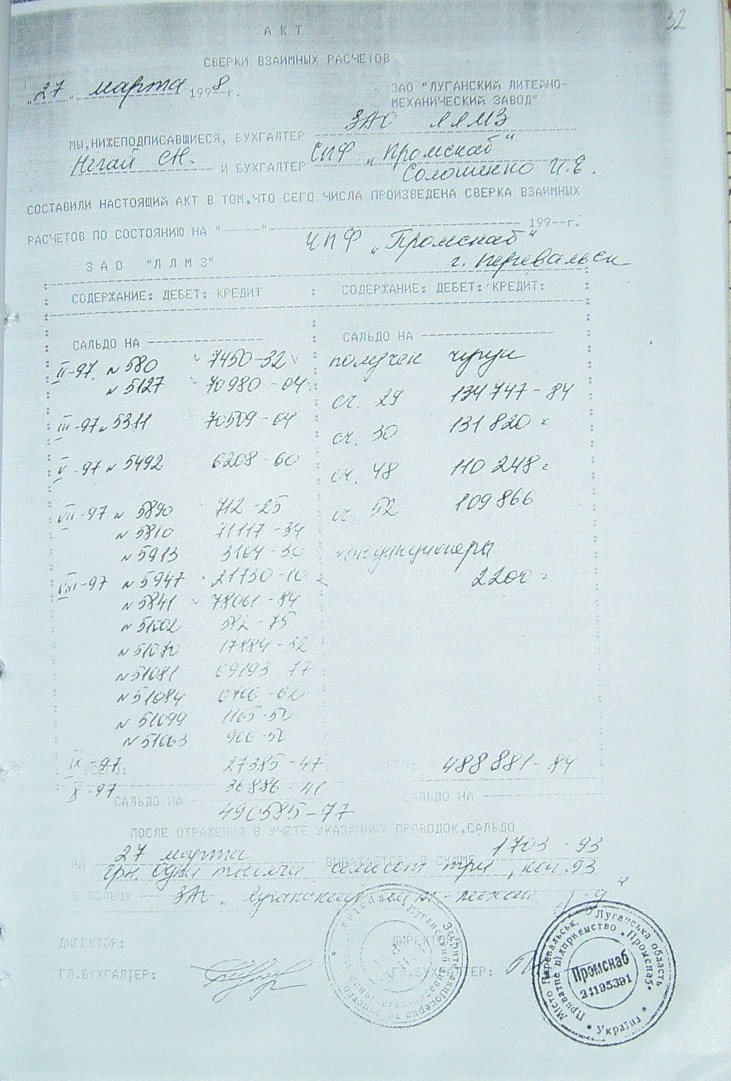 32
АКТ
СВЕРКИ ВЗАИМНЫХ РАСЧЕТОВ
"27" марта 1998г.
ЗАО "ЛУГАНСКИЙ ЛИТЕЙНО-
МЕХАНИЧЕСКИЙ ЗАВОД"
МЫ,НИЖЕПОДПИСАВШИЕСЯ, БУХГАЛТЕР ЗАО ЛЛМЗ
Негай С.Н. И БУХГАЛТЕР СПФ "Промснаб"
Солошенко И.Е.
СОСТАВИЛИ НАСТОЯЩИЙ АКТ В ТОМ,ЧТО СЕГО ЧИСЛА ПРОИЗВЕДЕНА СВЕРКА ВЗАИМНЫХ
РАСЧЕТОВ ПО СОСТОЯНИЮ НА "-----"---------- 199--г.
ЗАО "ЛЛМЗ" ЧПФ "Промснаб"
г. Перевальск
СОДЕРЖАНИЕ: ДЕБЕТ: КРЕДИТ : СОДЕРЖАНИЕ: ДЕБЕТ: КРЕДИТ:
САЛЬДО НА ---------- : САЛЬДО НА ----------
II-97. N 580 7450-32 получен чугун
N 5127 70980-04 сч. 29 134747-84
III-97 N 5311 70509-04 сч. 30 131820=
V-97 N 5492 6208-60 сч. 48 110248=
VII-97 N 5890 712-25 сч. 52 109866
N 5810 71117-34
N 5913 3164-30 кондиционеры
VIII-97 N 5947 21730-10 2200=
N 5841 78061-84
582-75
17884-32
N 51081 69193-77
N 51084
N 51099 1165-50
N 51063 966-50
IX-97 27385-47 488881-84
X-97 36886-41
САЛЬДО НА САЛЬДО НА ----------
490585-77
ПОСЛЕ ОТРАЖЕНИЯ В УЧЕТЕ УКАЗАННЫХ ПРОВОДОК,САЛЬДО
НА 27 марта ВЫРАЖАЕТСЯ В СУММЕ 1703-93
грн. Одна тысяча семьсот три, коп. 93
В ПОЛЬЗУ ЗАО
ДИРЕКТОР: ДИРЕКТОР:
ГЛ.БУХГАЛТЕР: ГЛ.БУХГАЛТЕР:
Місто Перевальськ, Луганська область
Приватне підприємство "Промснаб"
Промснаб
24195391
* Україна *